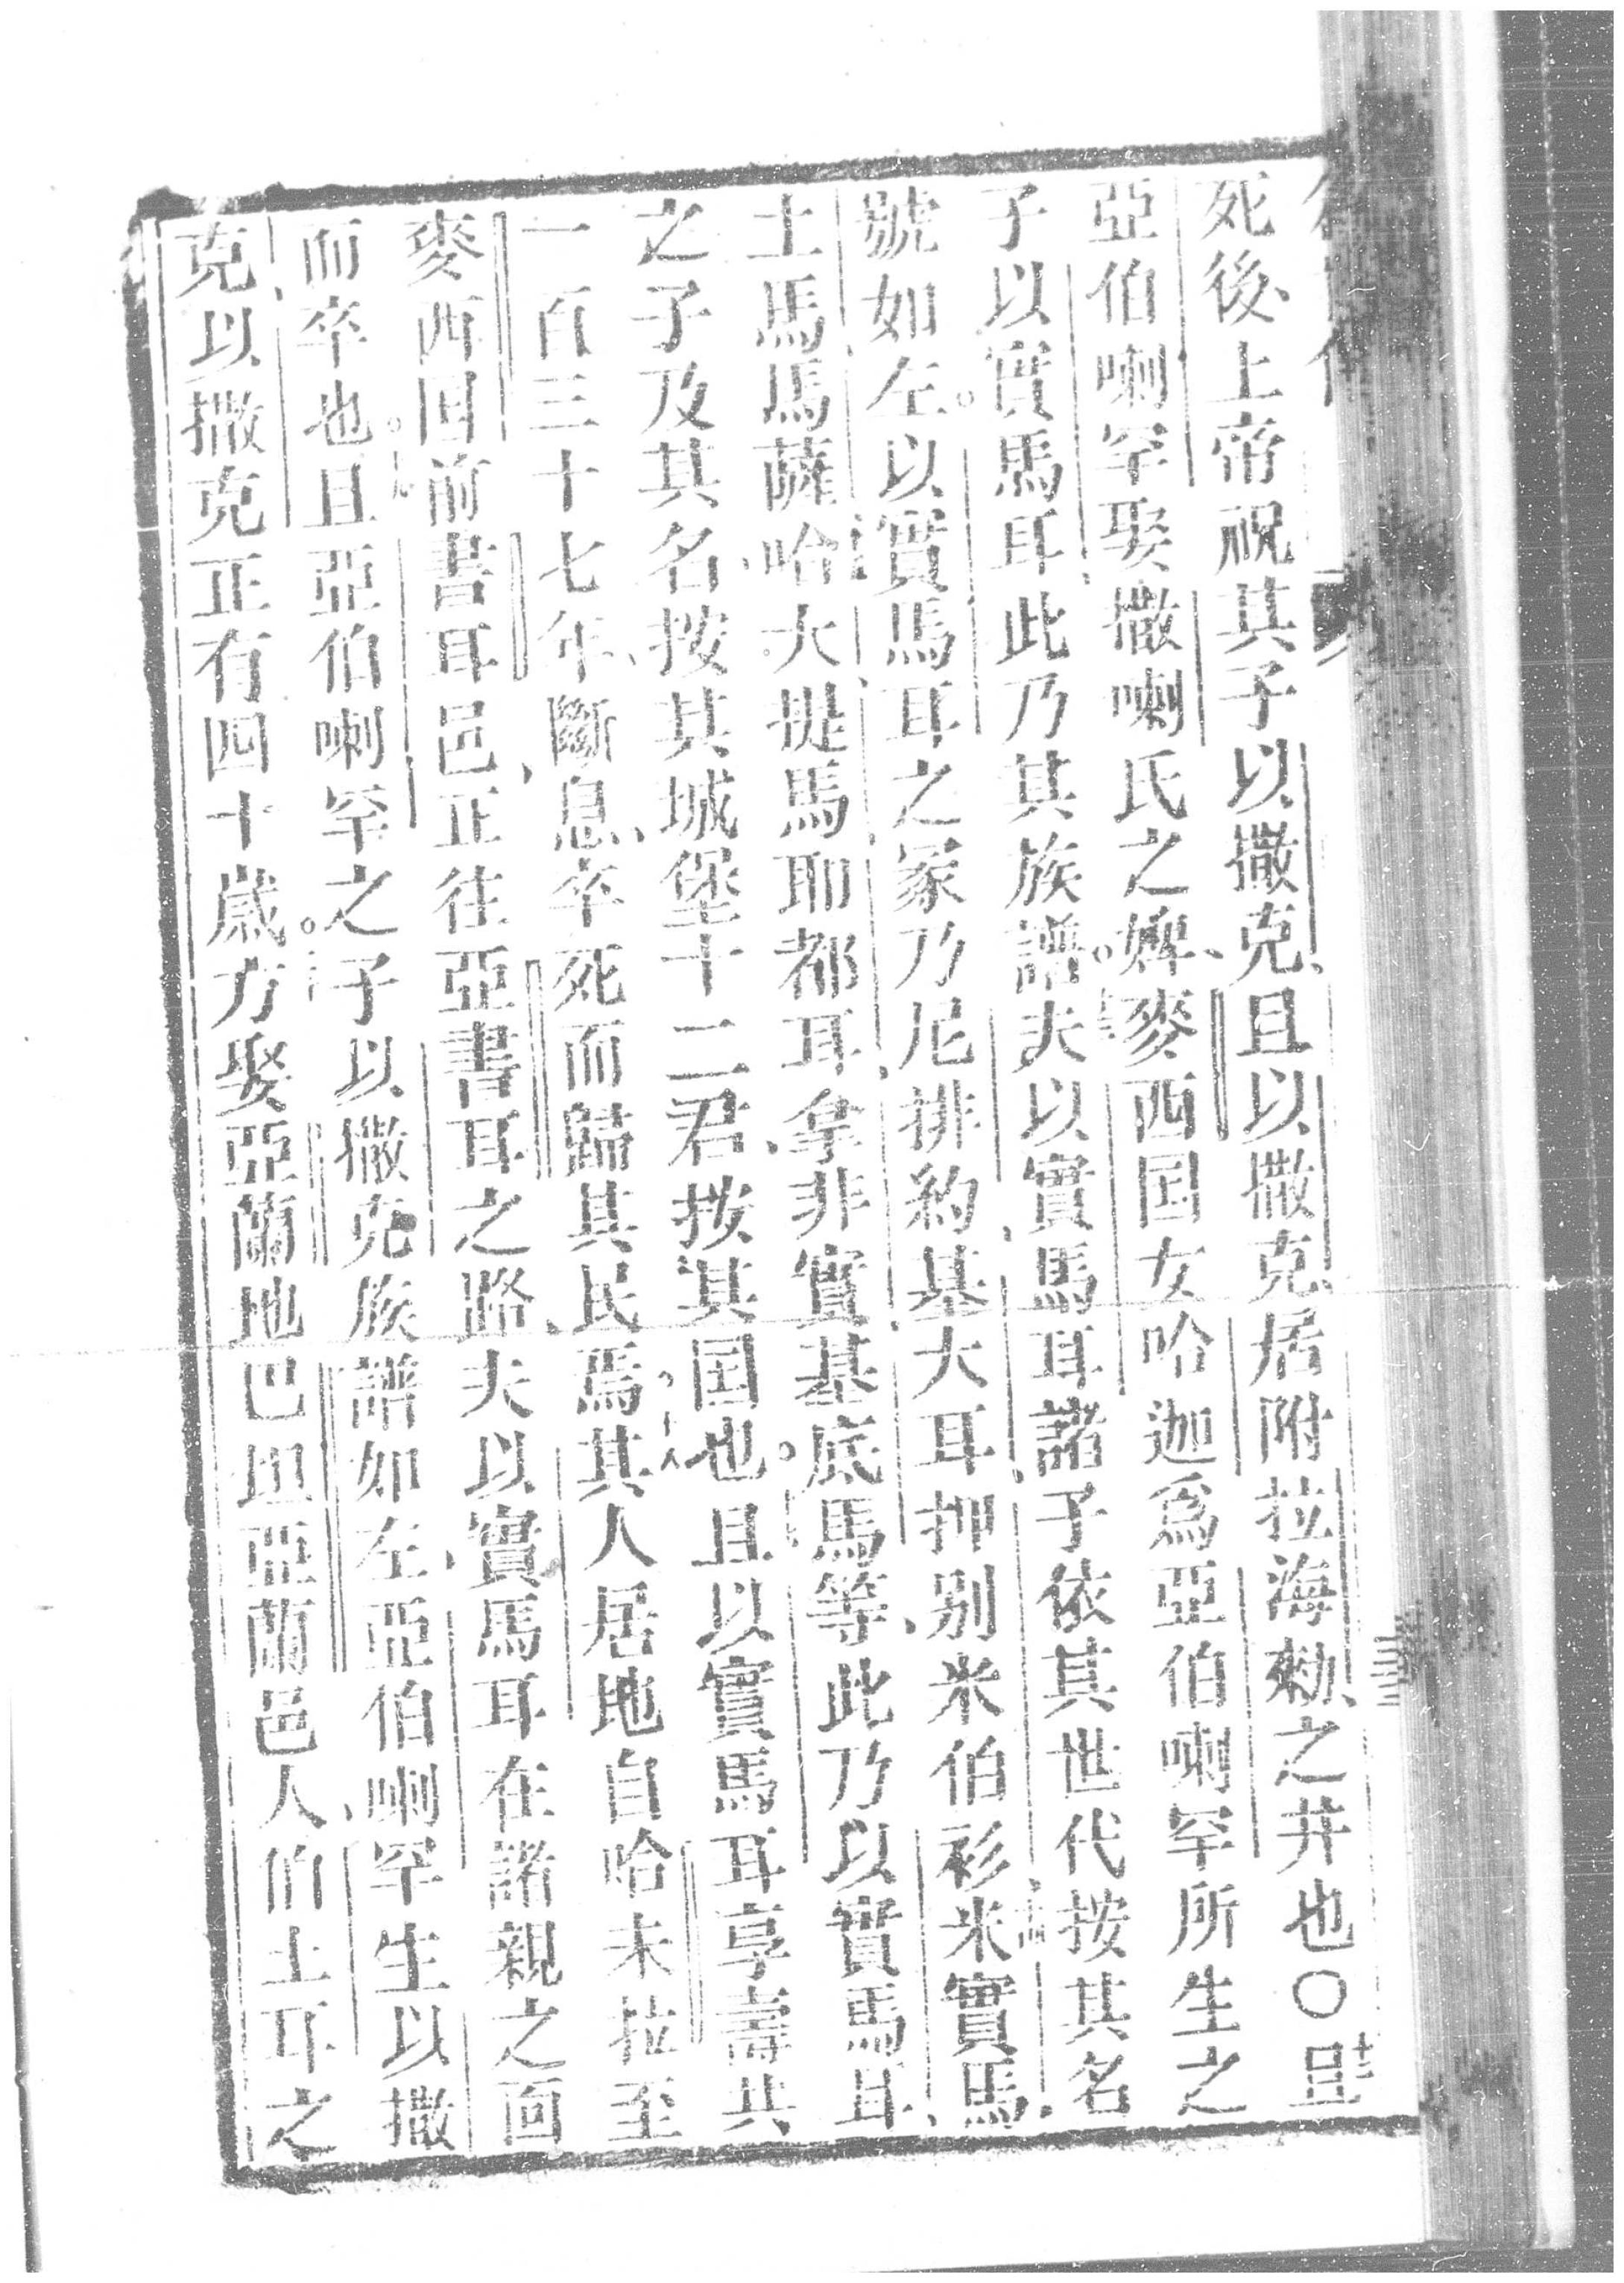 死後、上帝祝其子以撒克、且以撒克居附拉海勑、之井也○且 十二
亞伯喇罕娶撒喇氏之婢、麥西国女哈迦爲亞伯喇罕所生之
子以實馬耳此乃其族譜。夫以實馬耳諸子依其世代按其名
號如左。以實馬耳之冢乃尼排約、基大耳、押别米伯衫、米實馬、
土馬馬薩、哈大、提馬、耶都耳、拿非實、基底馬等、此乃以實馬耳
之子及其名按其城堡十二君、按其国也。且以實馬耳享壽共
一百三十七年、斷息、卒死而歸其民焉。其人居地自哈未拉至
麥西国前書耳邑、正往亞書耳之路、夫以實馬耳在諸親之面
而卒也。且亞伯喇罕之子以撒克族譜如左、亞伯喇罕生以撒
克、以撒克正有四十歲。方娶亞蘭地巴坦亞蘭邑人、伯土耳之